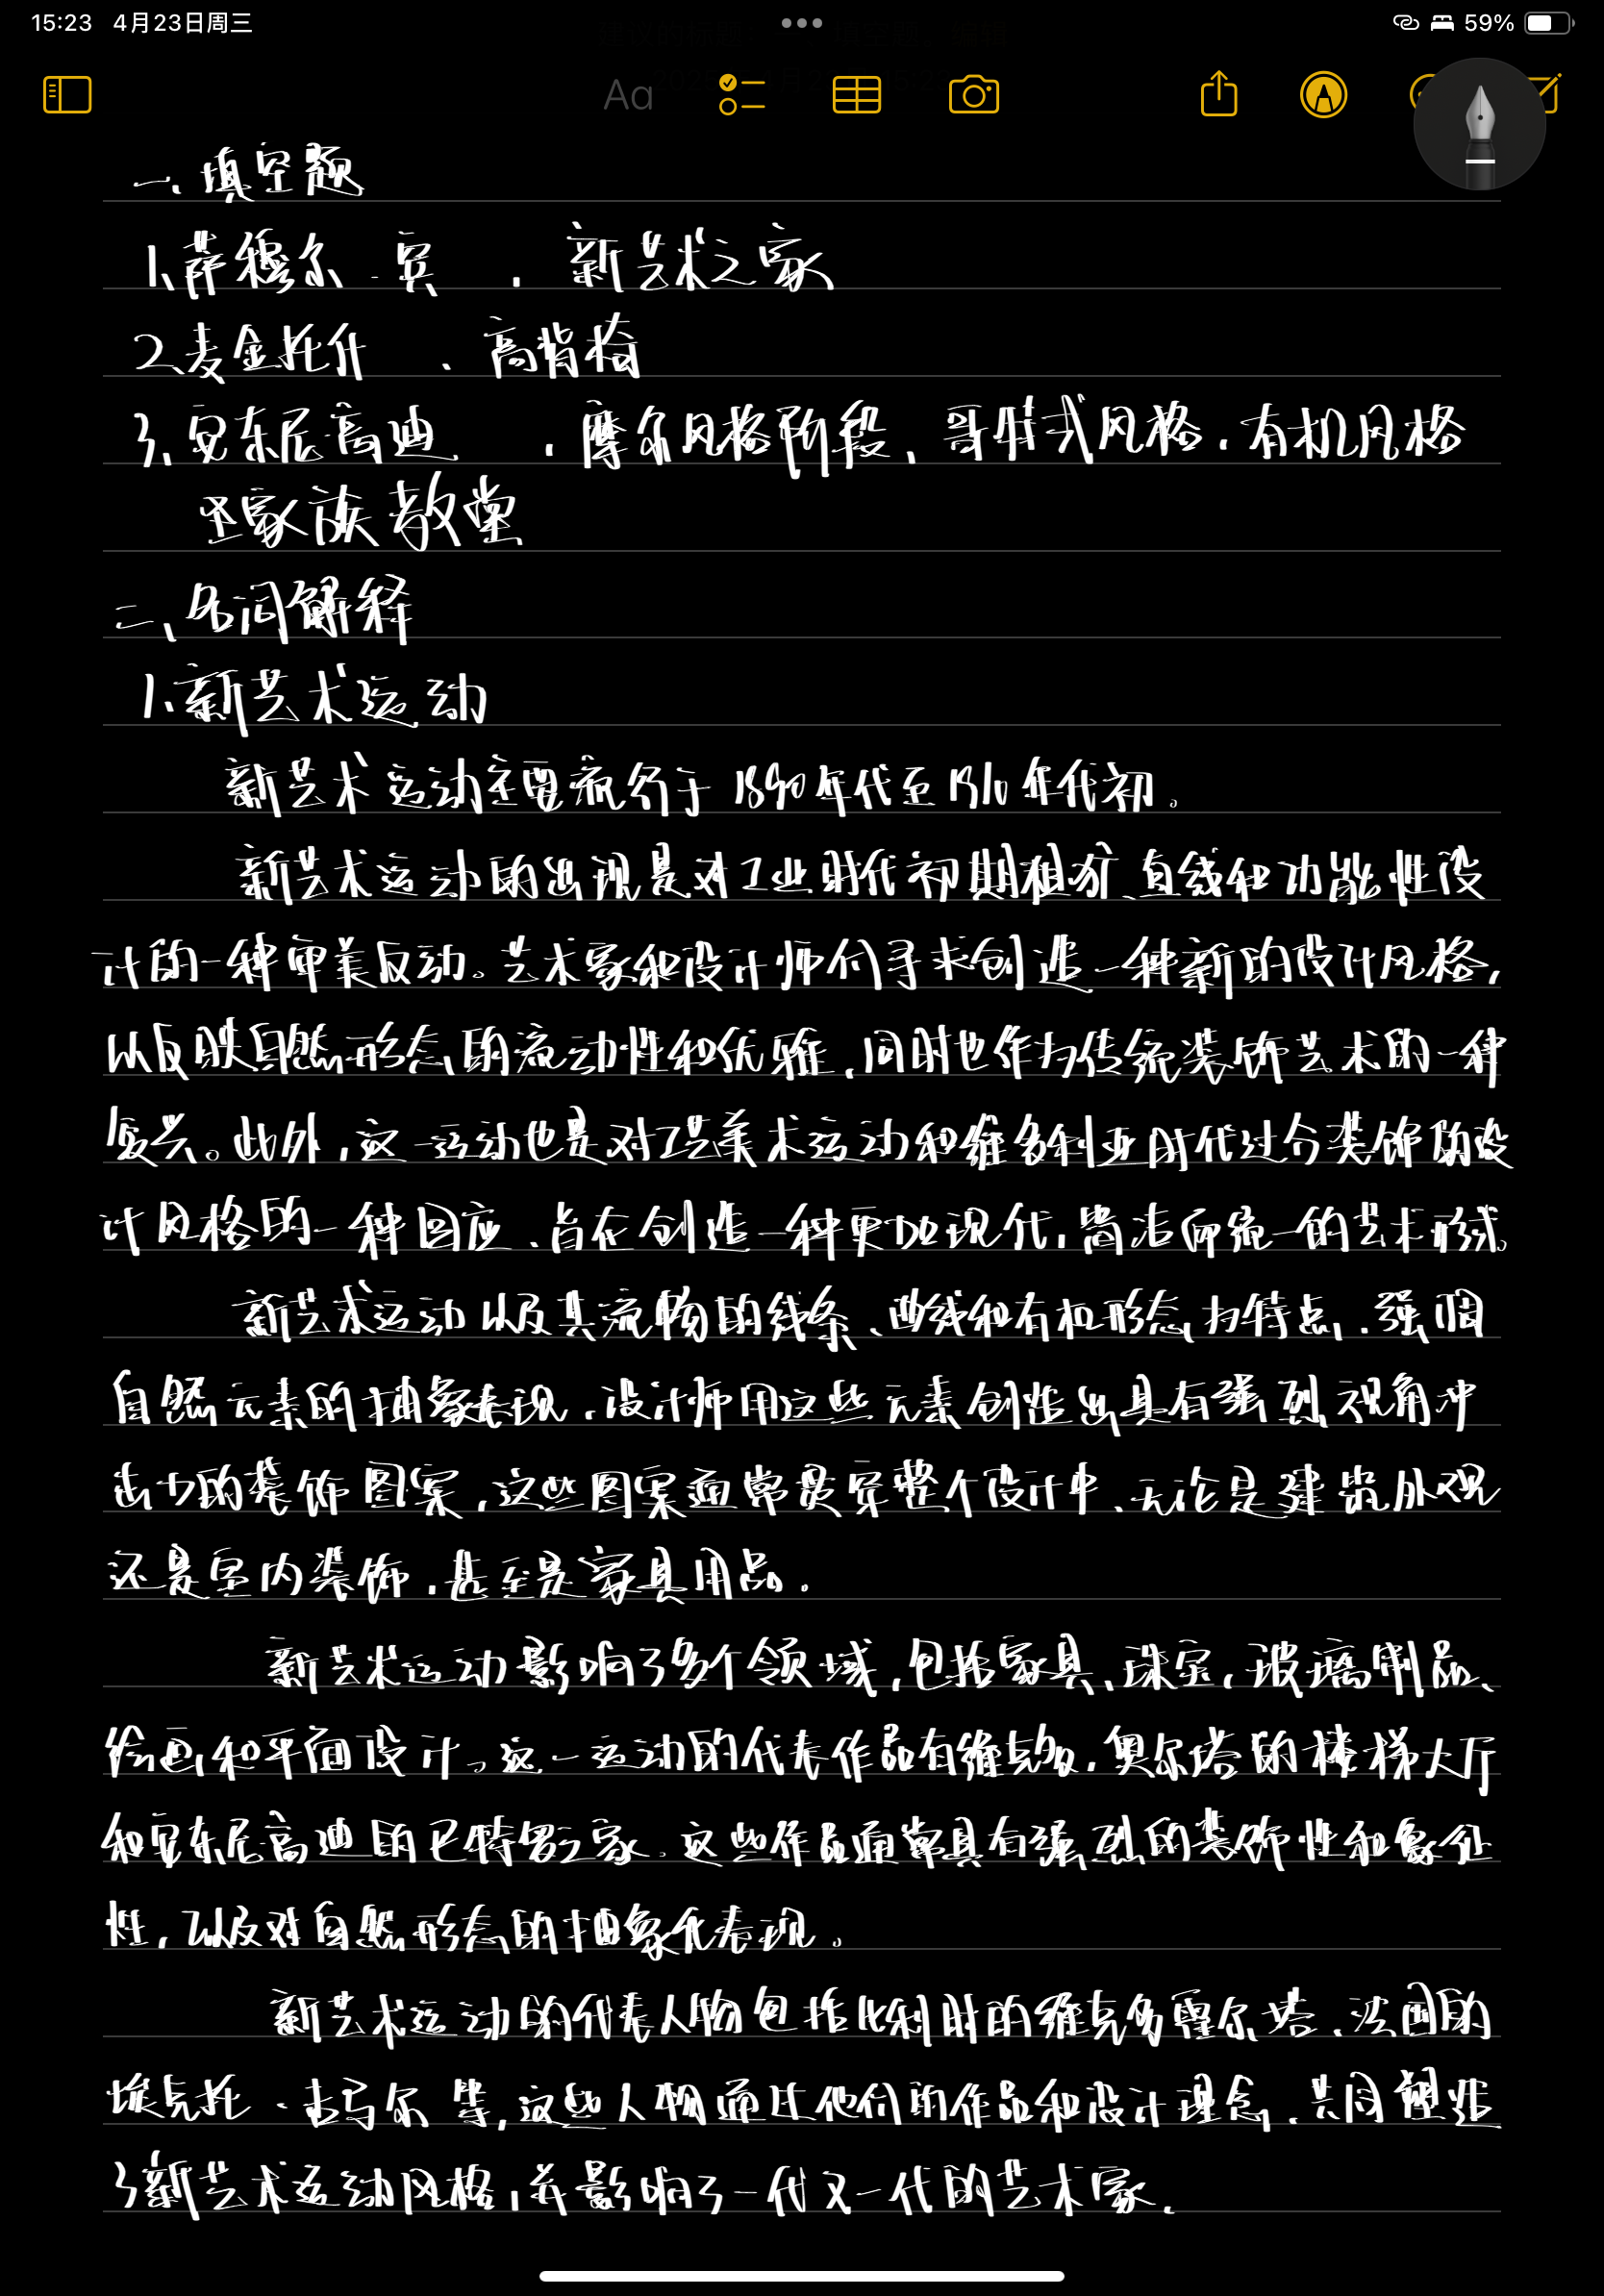 15:23 4月23日周三
59%
Aa
一、填空题
1、萨穆尔·宾 , 新艺术之家
2、麦金托什 、高背椅
3、安东尼高迪 , 摩尔风格阶段、哥特式风格,有机风格
圣家族教堂
二、名词解释
1、新艺术运动
新艺术运动主要流行于1890年代至1910年代初。
新艺术运动的出现是对工业时代初期粗犷、直线和功能性设
计的一种审美反动。艺术家和设计师们寻求创造一种新的设计风格,
以反映自然形态的流动性和优雅,同时也作为传统装饰艺术的一种
复兴。此外,这一运动也是对工艺美术运动和维多利亚时代过分装饰的设
计风格的一种回应、旨在创造一种更加现代,简洁而统一的艺术形式。
新艺术运动以及其流畅的线条、曲线和有机形态为特点,强调
自然元素的抽象表现,设计师用这些元素创造出具有强烈视角冲
击力的装饰图案,这些图案通常贯穿整个设计中、无论是建筑外观
还是室内装饰,甚至是家具用品.
新艺术运动影响了多个领域,包括家具、珠宝,玻璃制品、
绘画和平面设计。这一运动的代表作品有维克多,奥尔塔的楼梯大厅
和安东尼高迪的巴特罗之家.这些作品通常具有强烈的装饰性和象征
性,以及对自然形态的抽象化表现。
新艺术运动的代表人物包括比利时的维克多霍尔塔、法国的
埃克托·吉马尔等,这些人物通过他们的作品和设计理念,共同塑造
了新艺术运动风格,并影响了一代又一代的艺术家.